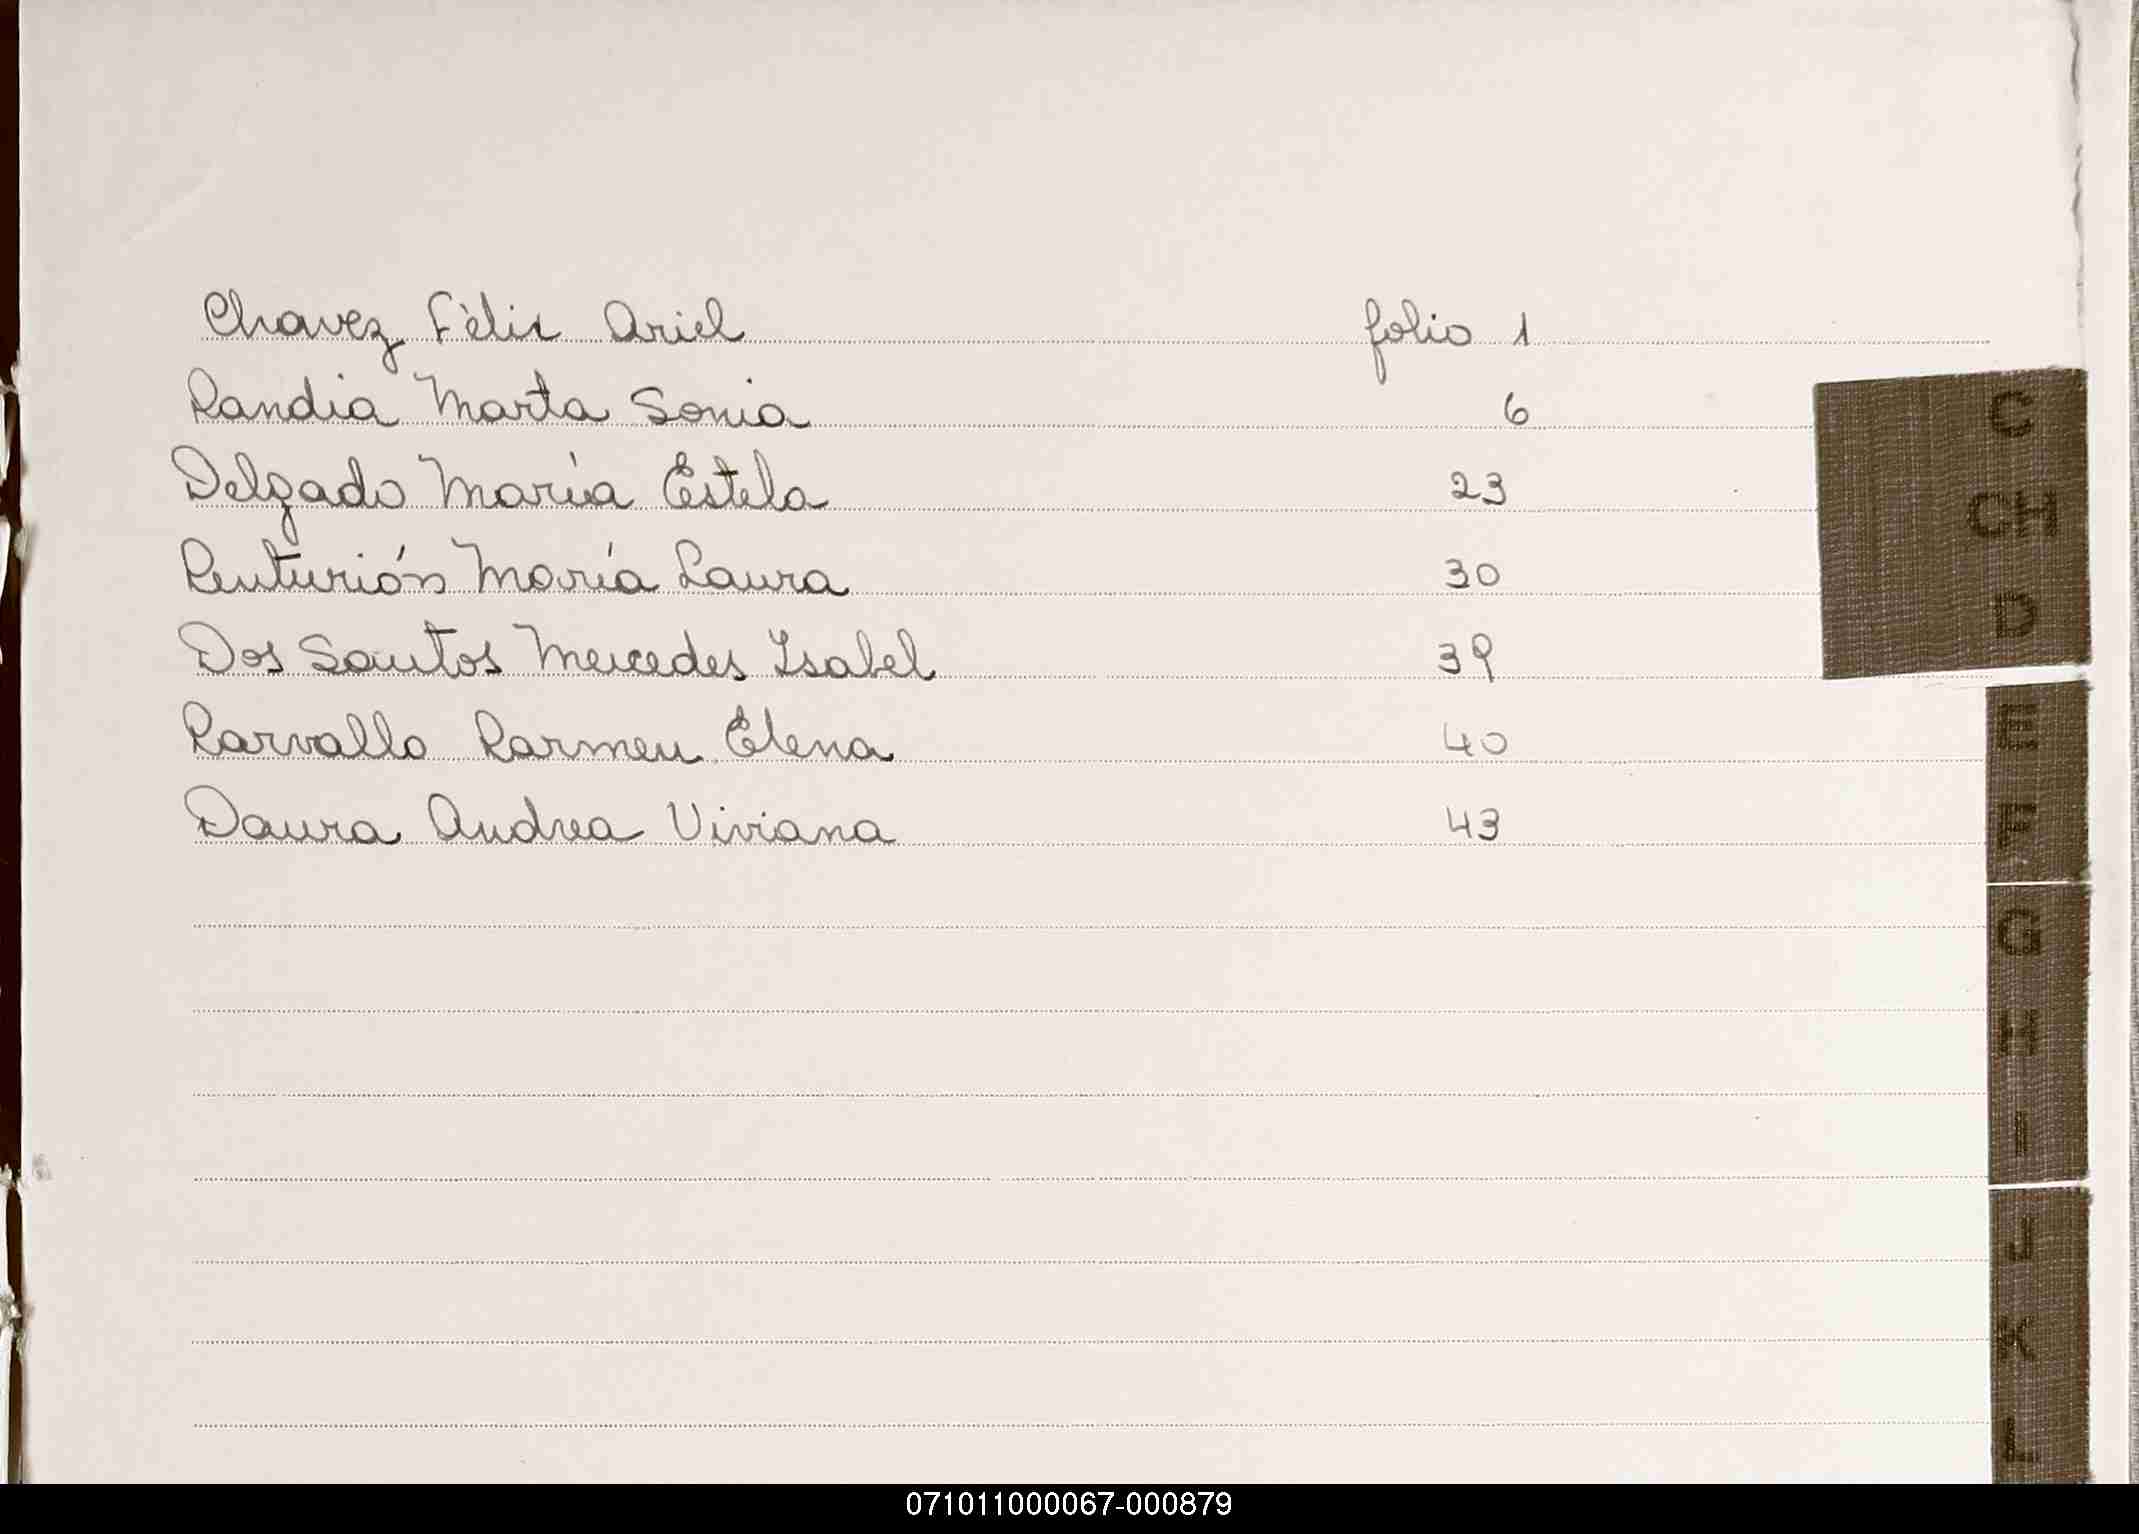 Chavez Félix Ariel folio 1
Candia Marta Sonia 6
Delgado María Estela 23
Centurión María Laura 30
Dos Santos Mercedes Isabel 39
Carvallo Carmen Elena 40
Daura Andrea Viviana 43
C
CH
D
E
F
G
H
I
J
K
L
071011000067-000879